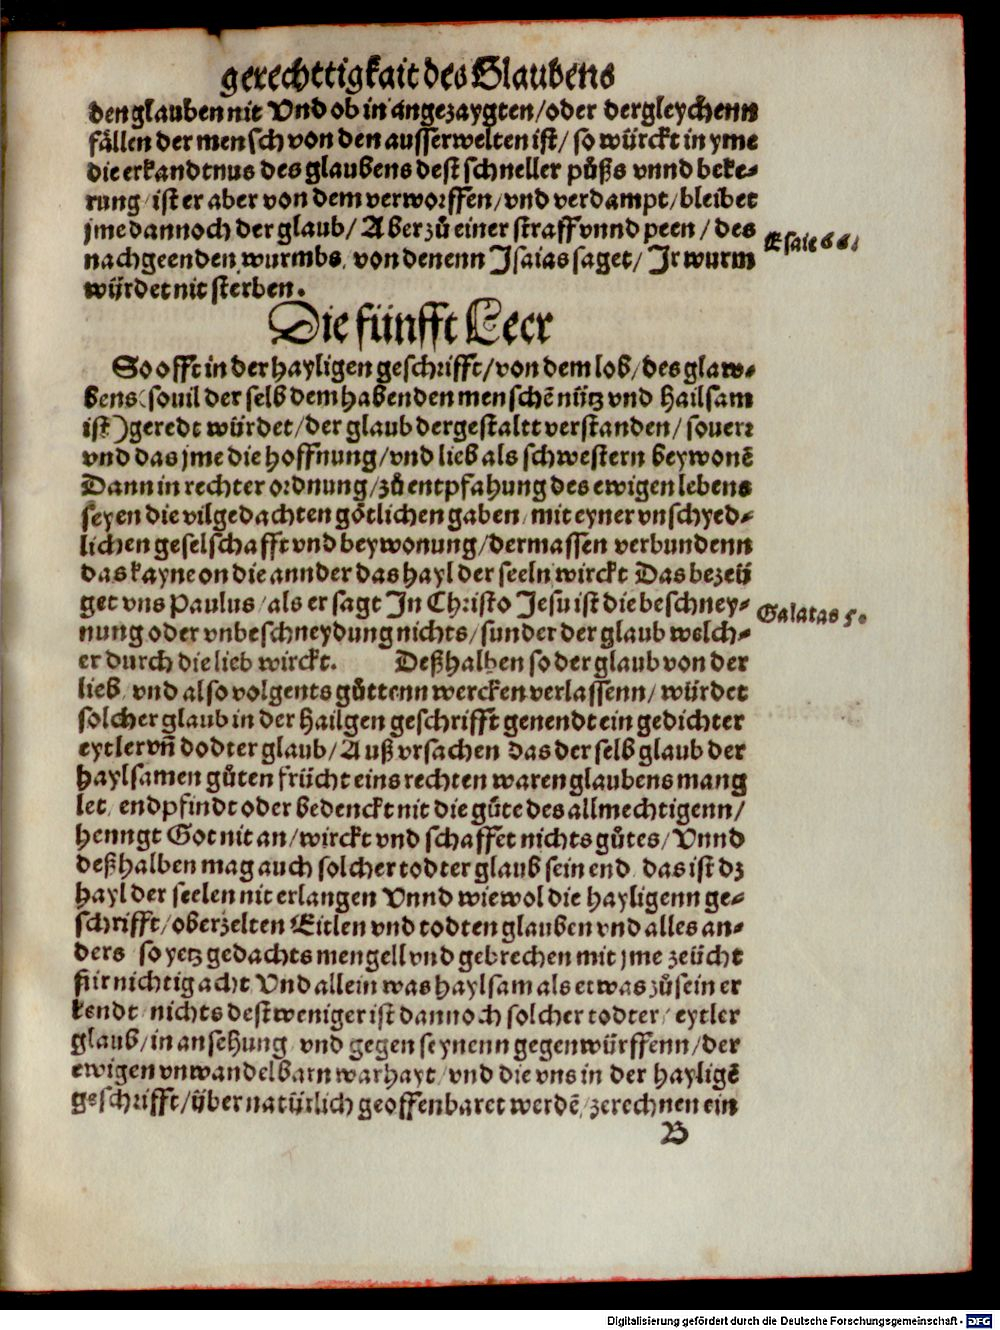 gerechttigkait des Glaubens
den glauben nit Vnd ob in angezaygten/oder dergleychenn
fällen der mensch von den ausserwelten ist/ so würckt in yme
die erkandtnus des glaubens dest schneller půßs vnnd beke⸗
rung/ ist er aber von dem verworffen/vnd verdampt/bleibet
jme dannoch der glaub/ Aber zů einer straff vnnd peen/ des
nachgeenden wurmbs, von denenn Isaias saget/ Ir wurm
würdet nit sterben.
Esaie 66.
Die fünfft Leer
So offt in der hayligen geschrifft/von dem lob/des glaw⸗
bens (souil der selb dem habenden menschē nütz vnd hailsam
ist) geredt würdet/der glaub dergestaltt verstanden/ souerr
vnd das jme die hoffnung/vnd lieb als schwestern beywonē
Dann in rechter ordnung/zů entpfahung des ewigen lebens
seyen die vilgedachten götlichen gaben/ mit eyner vnschyed⸗
lichen geselschafft vnd beywonung/dermassen verbundenn
das kayne on die annder das hayl der seeln wirckt Das bezeü
get vns Paulus/als er sagt In Christo Jesu ist die beschney⸗
nung oder vnbeschneydung nichts/sunder der glaub welch⸗
er durch die lieb wirckt. Deßhalben so der glaub von der
Galatas 5.
lieb/ vnd also volgents gůttenn wercken verlassenn/ würdet
solcher glaub in der hailgen geschrifft genendt ein gedichter
eytler vñ dodter glaub/Auß vrsachen das der selb glaub der
haylsamen gůten frücht eins rechten waren glaubens mang
let/ endpfindt oder bedenckt nit die gůte des allmechtigenn/
henngt Got nit an/wirckt vnd schaffet nichts gůtes/Vnnd
deßhalben mag auch solcher todter glaub sein end/ das ist dz
hayl der seelen nit erlangen Vnnd wiewol die hayligenn ge⸗
schrifft/oberzelten Eitlen vnd todten glauben vnd alles an⸗
ders/ so yetz gedachts mengell vnd gebrechen mit jme zeücht
für nichtig acht Vnd allein was haylsam als etwas zů sein er
kendt/ nichts dest weniger ist dannoch solcher todter/ eytler
glaub/in ansehung/ vnd gegen seynenn gegenwürffenn/der
ewigen vnwandelbarn warhayt/vnd die vns in der hayligē
geschrifft/übernatürlich geoffenbaret werdē/zerechnen ein
B
Digitalisierung gefördert durch die Deutsche Forschungsgemeinschaft - DFG